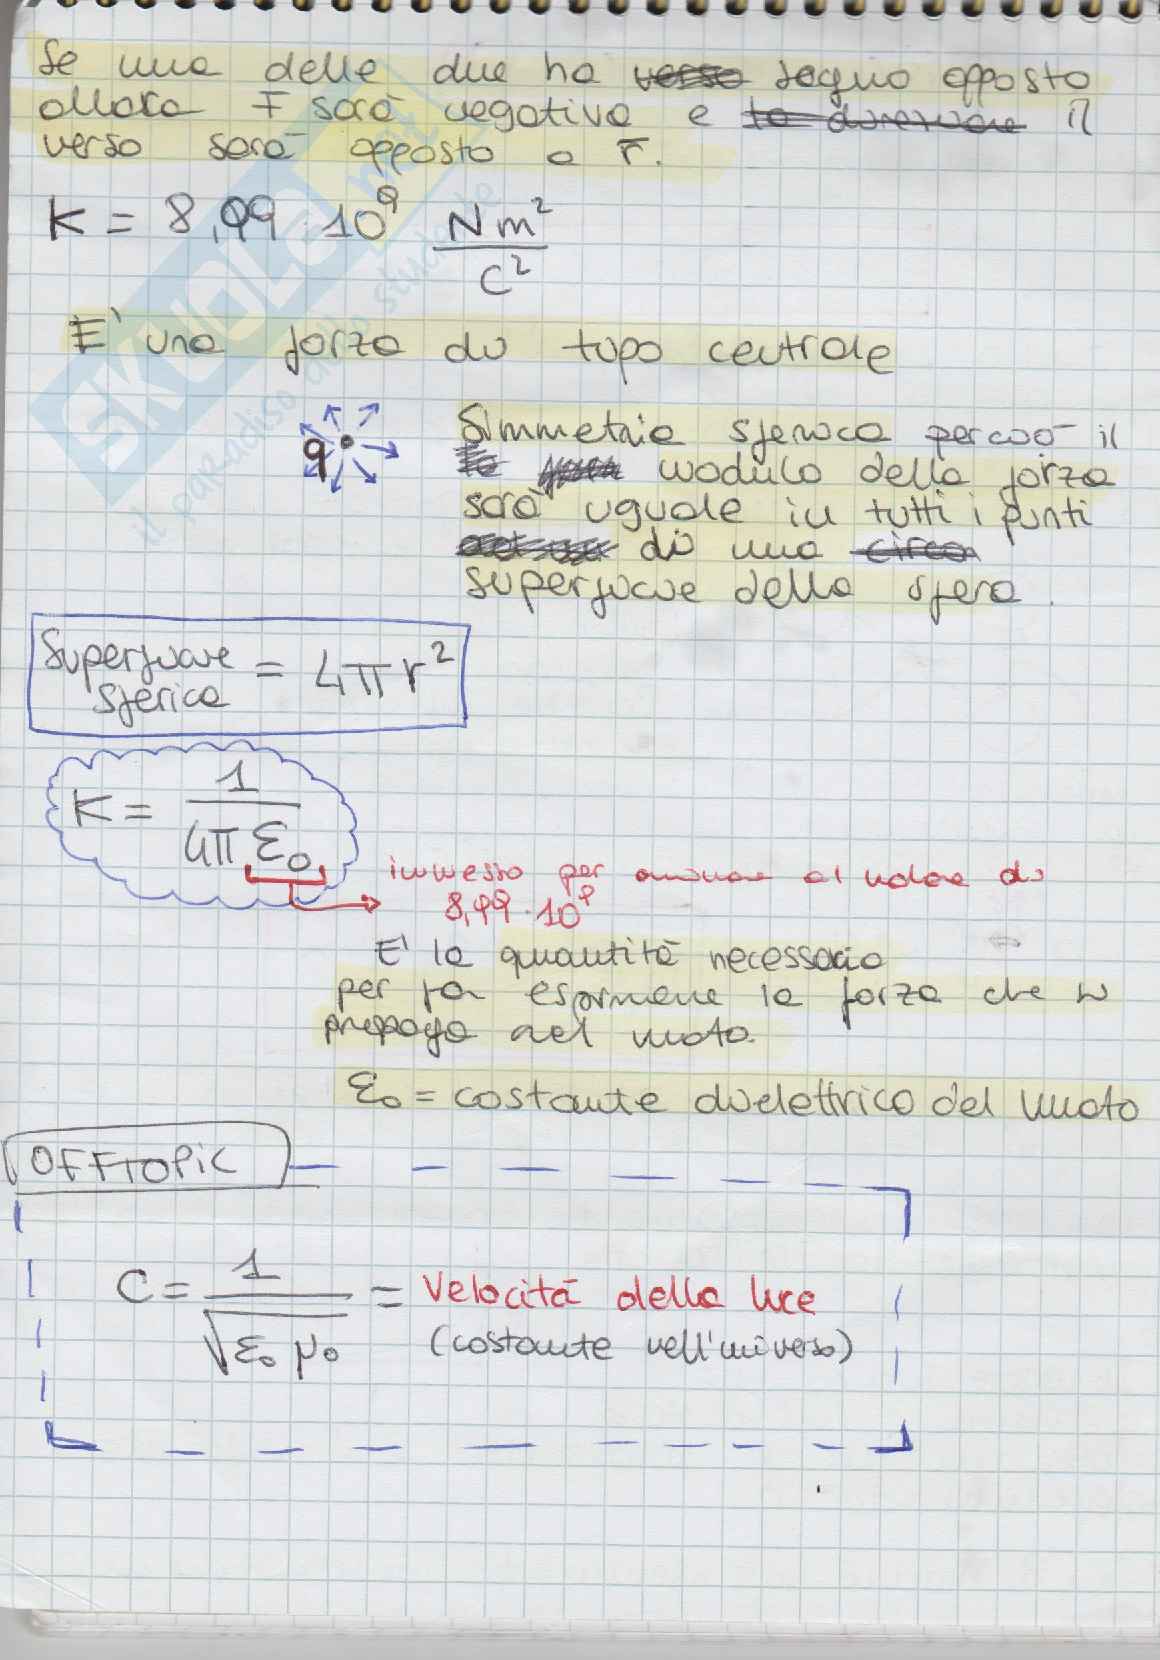 Se una delle due ha verso segno opposto
allora F sarà negativa e la direzione il
verso sarà opposto a F.
K = 8,99 · 10⁹ Nm²/C²
E' una forza di tipo centrale
q
Simmetria sferica perciò il
modulo della forza
sarà uguale in tutti i punti
di una circa
superficie della sfera.
Superficie sferica = 4πr²
K = 1/4πε₀
immesso per arrivare al valore di
8,99 · 10⁹
E' la quantità necessaria
per far esprimere la forza che si
propaga nel vuoto.
ε₀ = costante dielettrica del vuoto
OFFTOPIC
C = 1/√ε₀ μ₀ = Velocità della luce
(costante nell'universo)
SKUOLA.net
il paradiso dello studente